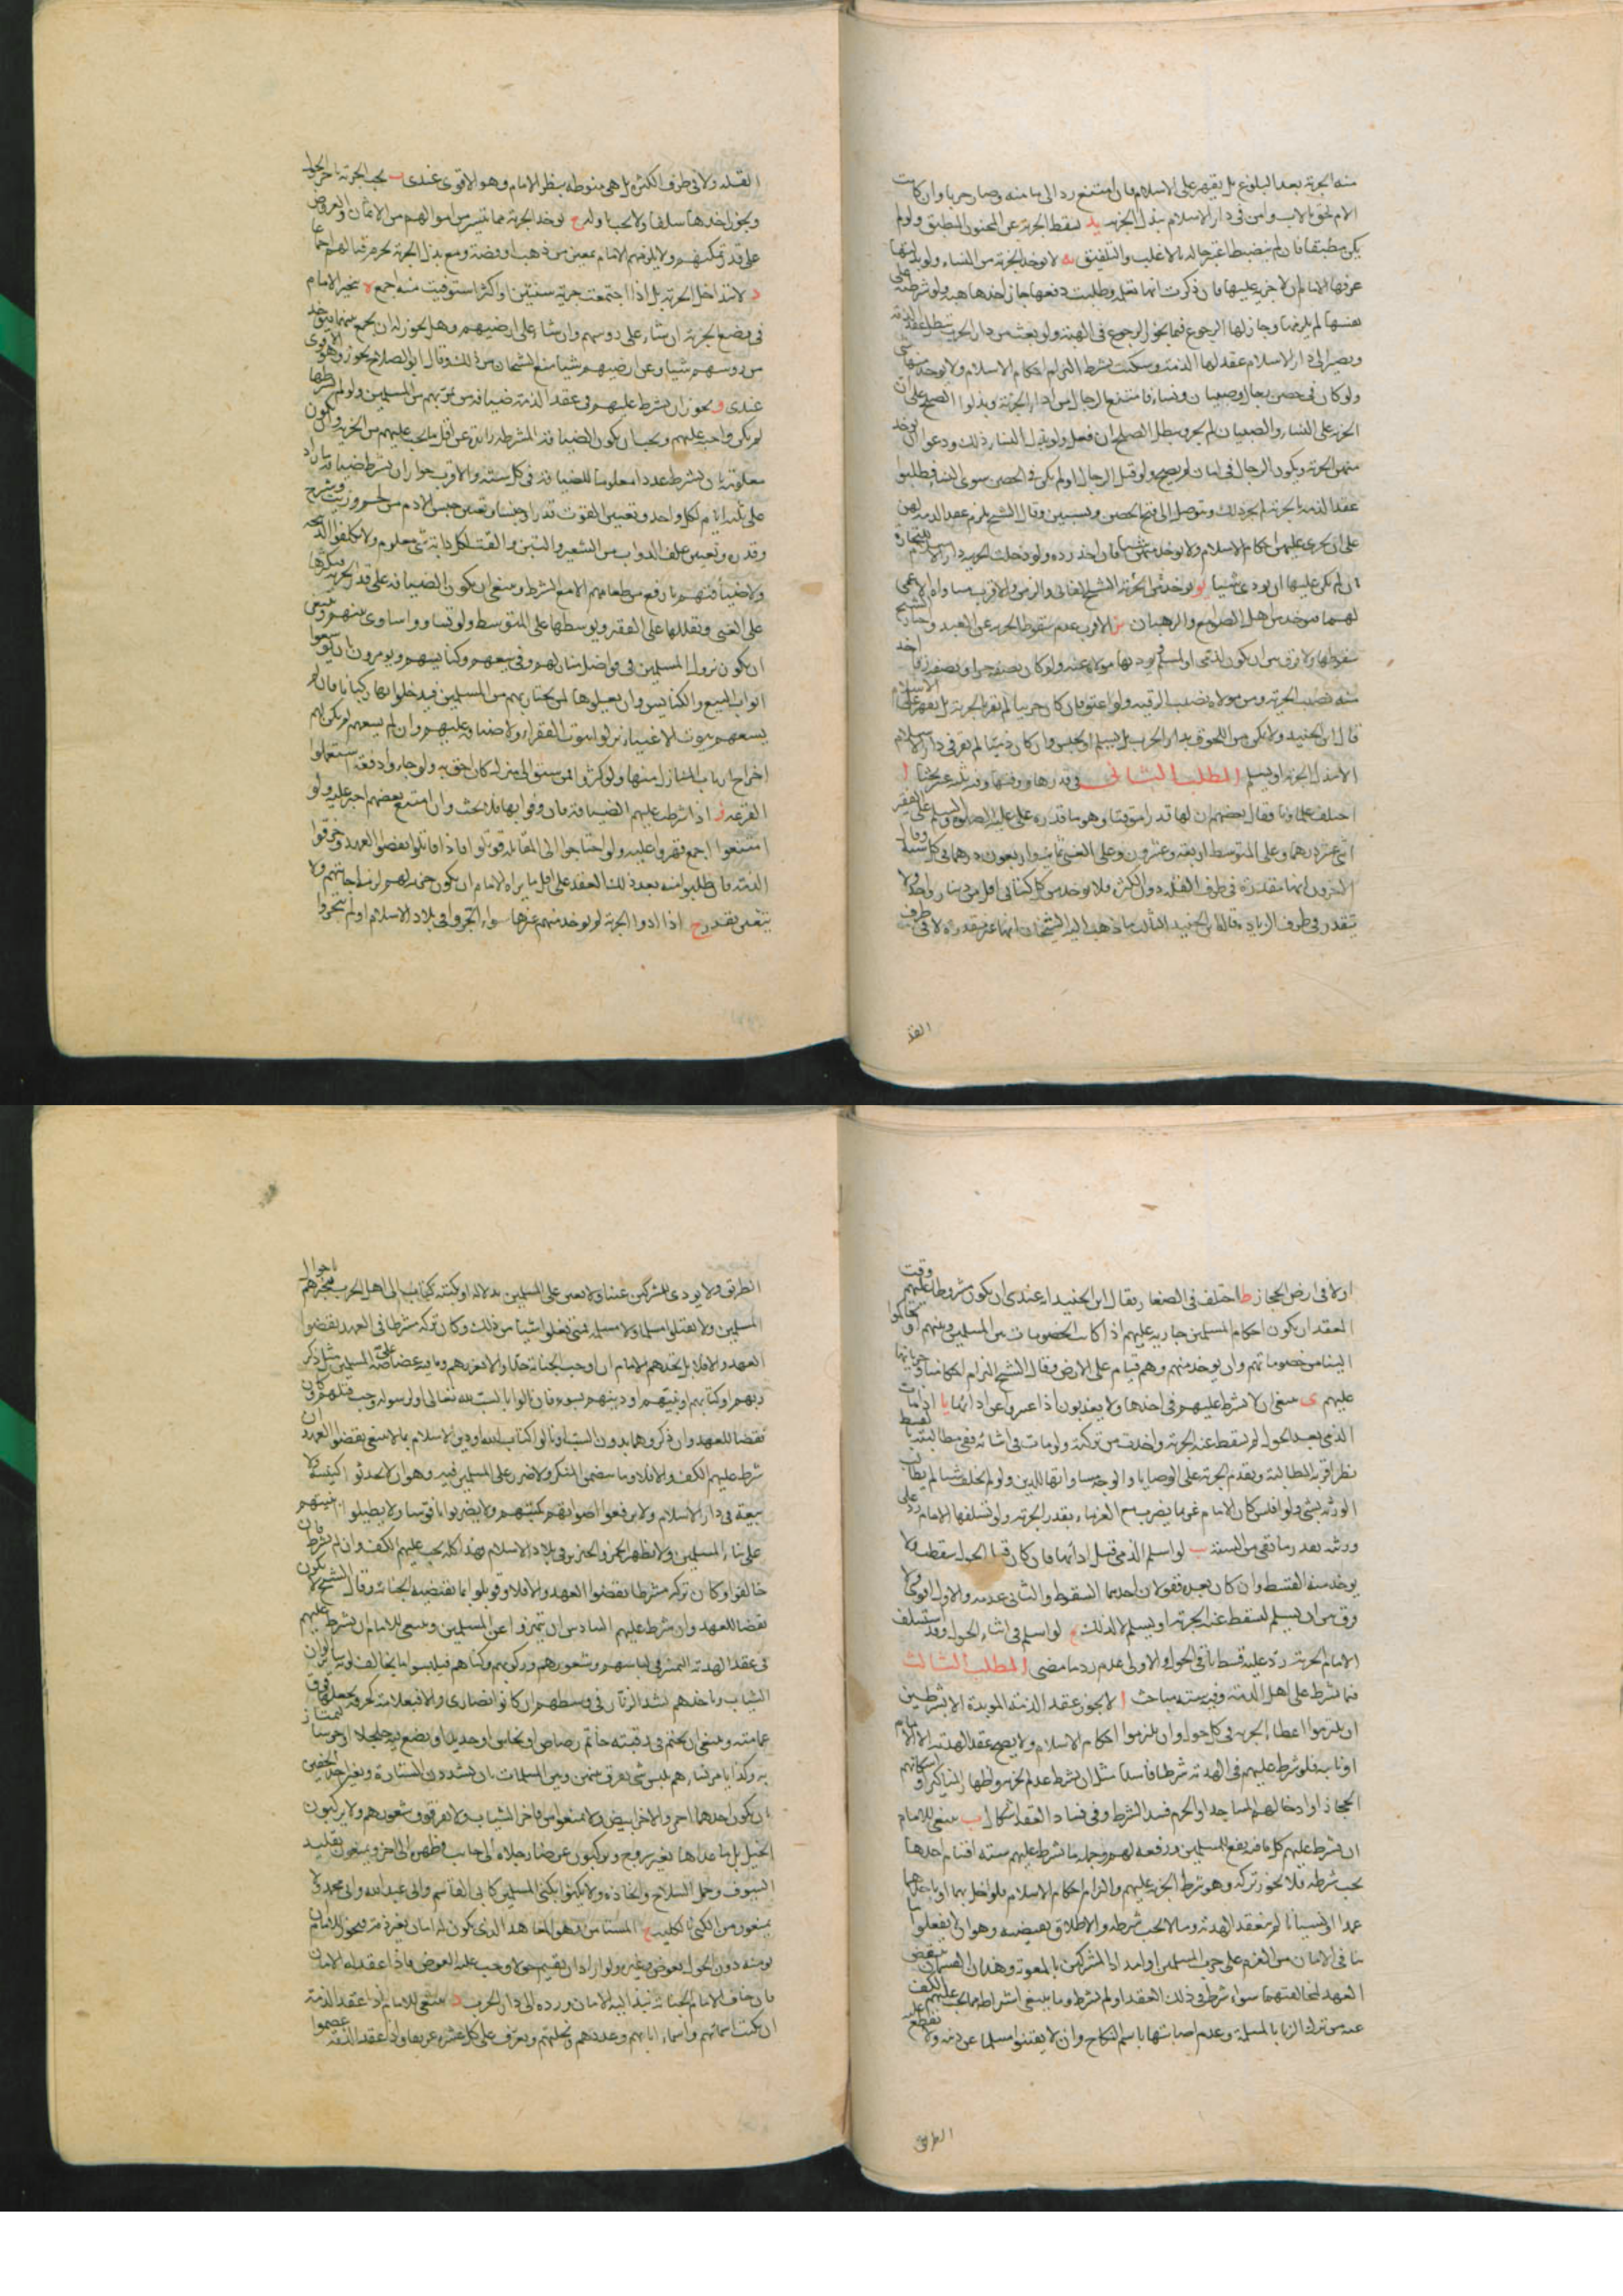 منه الجزية بعد البلوغ بل يقهر على الاسلام فان امتنع رد الى مامنه وصار حربيا وان كانت
الام لحق بالاب وامن في دار الاسلام ببذل الجزية يد تسقط الجزية عن المجنون المطبق ولو لم
يكن مطبقا فان لم ينضبط اعتبر حاله بالاغلب والتلفيق يه لا توخذ الجزية من النساء ولو بذلتها
عرفها الامام ان لا جزية عليها فان ذكرت انها تعلم وطلبت دفعها جاز اخذها هبة ولو شرطته على
نفسها لم يلزمها وجاز لها الرجوع فيما يجوز الرجوع في الهبة ولو بعثت من دار الحرب تطلب عقد الذمة
وتصير الى دار الاسلام عقد لها الذمة وسكنت بشرط التزام احكام الاسلام ولا يوخذ منها شي
ولو كان في حصن رجال وصبيان ونساء فامتنع الرجال من اداء الجزية وبذلوا الصلح على ان
الجزية على النساء والصبيان لم يجز وبطل الصلح ان فعل ولو بذل النساء ذلك ودعوا ان توخذ
منهن الجزية ويكون الرجال في امان لم يصح ولو قتل الرجال او لم يكن في الحصن سوى النساء فطلبوا
عقد الذمة بالجزية لم يجز ذلك وتوصل الى فتح الحصن وسبين وقال الشيخ يلزم عقد الذمة لهن
على ان تجري عليهن احكام الاسلام ولا يوخذ منهن شيئا فان اخذ رده ولو دخلت الحربية دار الاسلام للتجارة
لم يكن عليها ان تودي شيئا يو توخذ الجزية من الشيخ الفاني والزمن والاقرب مساواة الاعمى
لهما وتوخذ من اهل الصوامع والرهبان يز الاقرب عدم سقوط الجزية عن العبد وجاز الشيخ
سقوطها ولا فرق بين ان يكون لذمي او لمسلم يوديها مولاه عنه ولو كان نصفه حرا ونصفه رقا اخذ
منه نصيب الجزية ومن مولاه نصيب الرقية ولو اعتق فان كان حربيا لم يقر بالجزية بل يقهر على الاسلام
قال ابن الجنيد ولا يمكن من اللحوق بدار الحرب بل يسلم او يحبس وان كان ذميا لم يقر في دار الاسلام
الا ببذل الجزية او يسلم المطلب الثاني في قدرها ووقتها وفيه ثلثة عشر بحثا ا
اختلف علماونا فقال بعضهم ان لها قدرا موقتا وهو ما قدره علي عليه الصلوة والسلم على الفقير
اثني عشر درهما وعلى المتوسط اربعة وعشرون وعلى الغني ثمانية واربعون درهما في كل سنة وقال
اخرون انها متقدرة في طرف القلة دون الكثرة فلا يوخذ من كل كتابي اقل من دينار واحد ولا
تتقدر في طرف الزيادة قاله ابن الجنيد الثالث ما ذهب اليه الشيخان انها غير متقدرة لا في طرف
القلة
القلة ولا في طرف الكثرة بل هي منوطة بنظر الامام وهو الاقوى عندي ب تجب الجزية باخر الحول
ويجوز اخذها سلفا ولا تجب باوله ج توخذ الجزية مما تيسر من اموالهم من الاثمان والعروض
على قدر تمكنهم ولا يلزمهم الامام بمعين من ذهب او فضة ومع بذل الجزية يحرم قتالهم اجماعا
د لا تتداخل الجزية بل اذا اجتمعت جزية سنتين او اكثر استوفيت منه اجمع ه يتخير الامام
في وضع الجزية ان شاء على رؤسهم وان شاء على ارضيهم وهل يجوز له ان يجمع بينهما فيوخذ
من رؤسهم شيئا وعن ارضيهم شيئا منع الشيخان من ذلك وقال ابو الصلاح يجوز وهو الاقوى
عندي و يجوز ان يشرط عليهم في عقد الذمة ضيافة من يمر بهم من المسلمين ولو لم يشرطها
لم يكن واجبة عليهم ويجب ان يكون الضيافة المشرطة زائدة عن اقل ما يجب عليهم من الجزية وان يكون
معلومة بان يشرط عددا معلوما للضيافة في كل سنة والاقرب جواز ان يشرط ضيافة ما زاد
على ثلثة ايام لكل واحد وتعيين القوت قدرا وجنسا وتعيين جنس الادم من لحم وزيت وشيرج
وقدره وتعيين علف الدواب من الشعير والتبن والقت لكل دابة شي معلوم ولا يكلفوا الذبيحة
ولا ضيافتهم بارفع من طعامهم الا مع الشرط وينبغي ان يكون الضيافة على قدر الجزية فيكثرها
على الغني ويقللها على الفقير ويوسطها على المتوسط ولو تساووا ساوى بينهم وينبغي
ان يكون نزول المسلمين في فواضل منازلهم وفي بيعهم وكنايسهم ويومرون ان يوسعوا
ابواب البيع والكنايس وان يعلوها لمن يجتاز بهم من المسلمين فيدخلوا بها ركبانا فان لم
يسعهم بيوت الاغنياء نزلوا بيوت الفقراء ولا ضيافة عليهم وان لم يسعهم لم يكن لهم
اخراج ارباب المنازل منها ولو كثروا فمن سبق الى منزل كان احق به ولو جاءوا دفعة استعملوا
القرعة ز اذا شرط عليهم الضيافة فان وفوا بها فلا بحث وان امتنع بعضهم اجبر عليه ولو
امتنعوا اجمع قهروا عليه ولو احتاجوا الى المقاتلة قوتلوا فاذا قاتلوا نقضوا العهد وخرقوا
الذمة فان طلبوا منه بعد ذلك العقد على اقل ما يراه الامام ان يكون جزية لهم لزمه اجابتهم ولا
يتعين بقدر ح اذا ادوا الجزية لم يوخذ منهم غيرها سواء اتجروا في بلاد الاسلام او لم يتجروا
او لا في ارض الحجاز ط اختلف في الصغار فقال ابن الجنيد انه عندي ان يكون مشروطا عليهم وقت
العقد ان يكون احكام المسلمين جارية عليهم اذا كانت الخصومات بين المسلمين وبينهم او تحاكموا
الينا من خصوماتهم وان يوخذ منهم وهم قيام على الارض وقال الشيخ التزام احكامنا وجريانها
عليهم ي ينبغي ان لا يشرط عليهم في اخذها ولا يعذبون اذا اعسروا عن ادائها يا اذا مات
الذمي بعد الحول لم تسقط عنه الجزية واخذت من تركته ولو مات في اثنائه ففي مطالبته بالقسط
نظر اقربه المطالبة ويقدم الجزية على الوصايا والوجه مساواتها للدين ولو لم يخلف شيئا لم يطالب
الورثة بشي ولو افلس كان الامام غريما يضرب مع الغرماء بقدر الجزية ولو تسلفها الامام رد على
ورثته بقدر ما بقي من السنة يب لو اسلم الذمي قبل ادائها فان كان قبل الحول سقطت ولا
يوخذ منه القسط وان كان بعده فقولان احدهما السقوط والثاني عدمه والاول اقوى ولا
فرق بين ان يسلم لتسقط عنه الجزية او يسلم لا لذلك يج لو اسلم في اثناء الحول وقد استسلف
الامام الجزية رد عليه قسط باقي الحول والاولى عدم رد ما مضى المطلب الثالث
فيما يشرط على اهل الذمة وفيه ستة مباحث ا لا يجوز عقد الذمة الموبدة الا بشرطين
ان يلتزموا اعطاء الجزية في كل حول وان يلتزموا احكام الاسلام ولا يصح عقد الهدنة الا الامام
او نايبه فلو شرط عليهم في الهدنة شرطا فاسدا مثل ان يشرط عدم الجزية او اظهار المناكير او اسكانهم
الحجاز او ادخالهم المساجد او الحرم فسد الشرط وفي فساد العقد اشكال ب ينبغي للامام
ان يشرط عليهم كل ما فيه نفع للمسلمين ورفعة لهم وجملة ما يشرط عليهم ستة اقسام احدها
يجب شرطه فلا يجوز تركه وهو شرط الجزية عليهم والتزام احكام الاسلام فلو اخل بهما او باحدهما
عمدا او نسيانا لم ينعقد الهدنة وما لا يجب شرطه والاطلاق يقتضيه وهو ان لا يفعلوا ما
ينافي الامان من العزم على حرب المسلمين او امداد المشركين بالمعونة وهذان القسمان ينقض
العهد بمخالفتهما سواء شرط في ذلك العقد او لم يشرط وما ينبغي اشتراطه مما يجب عليهم الكف
عنه من ترك الزنا بالمسلمة وعدم اصابتها باسم النكاح وان لا يفتنوا مسلما عن دينه ولا يقطع عليه
الطريق
الطريق ولا يودي للمشركين عينا ولا يعين على المسلمين بدلالة او بكتبة كتاب الى اهل الحرب فيخبرهم باحوال
المسلمين ولا يقتلوا مسلما ولا مسلمة فمتى فعلوا شيئا من ذلك وكان تركه مشترطا في العهد نقضوا
العهد والا فلا بل يحدهم الامام ان اوجبت الجناية حدا والا عزرهم وما فيه غضاضة على المسلمين مثل ذكر
ربهم او كتابهم او نبيهم او دينهم بسوء فان نالوا بالسب لله تعالى او لرسوله وجب قتلهم وكان
نقضا للعهد وان ذكروهما بدون السب او نالوا كتاب الله او دين الاسلام بما لا ينبغي نقضوا العهد ان
شرط عليهم الكف والا فلا وما يتضمن المنكر ولا ضرر على المسلمين فيه وهو ان لا يحدثوا كنيسة ولا
بيعة في دار الاسلام ولا يرفعوا اصواتهم بكتبهم ولا يضربوا ناقوسا ولا يطيلوا ابنيتهم
على بناء المسلمين ولا يظهروا الخمر والخنزير في بلاد الاسلام فهذا كله يجب عليهم الكف وان لم يشرط فان
خالفوا وكان تركه مشترطا نقضوا العهد والا فلا وقوبلوا بما تقتضيه الجناية وقال الشيخ لا يكون
نقضا للعهد وان شرط عليهم السادس ان يتميزوا عن المسلمين وينبغي للامام ان يشرط عليهم
في عقد الهدنة التميز في لباسهم وشعورهم وركوبهم وكناهم فيلبسوا ما يخالف لونه سائر الوان
الثياب وياخذهم بشد الزنار في وسطهم ان كانوا نصارى والا فبعلامة كخرقة يجعلها فوق
عمامته وينبغي ان يختم في رقبته خاتم رصاص او نحاس او حديد او يضع فيه جلجلا او جرسا ليمتاز
به وكذا يامر نساءهم بلبس شي يفرق بينهن وبين المسلمات بان يشددن الزنار وتغير احد الخفين
بان يكون احدهما احمر والاخر ابيض ولا يمنعوا من فاخر الثياب ولا يفرقون شعورهم ولا يركبون
الخيل بل ما عداها بغير سروج ويركبون عرضا رجلاه الى جانب وظهره الى اخر ويمنعون تقليد
السيوف وحمل السلاح واتخاذه ولا يكنوا بكنى المسلمين كابي القاسم وابي عبد الله وابي محمد ولا
يمنعون من الكنى بالكلية ج المستامن وهو المعاهد الذي يكون له امان بغير ذمة فيجوز للامام ان
يومنه دون الحول بعوض وغيره ولو اراد ان يقيم حولا وجب عليه العوض فاذا عقد له الامان
فان خاف الامام الخيانة نبذ اليه الامان ورده الى دار الحرب د ينبغي للامام اذا عقد الذمة
ان يكتب اسمائهم واسماء ابائهم وعددهم وحليتهم ويعرف على كل عشرة عريفا واذا عقد الذمة عصموا